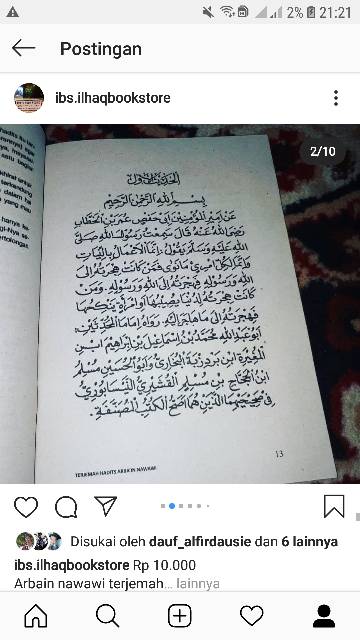 21:21
2%
Postingan
ibs.ilhaqbookstore
2/10
satu bagian
الْحَدِيْثُ الْاَوَّلُ
بِسْمِ اللهِ الرَّحْمٰنِ الرَّحِيْمِ
عَنْ اَمِيْرِ الْمُؤْمِنِيْنَ اَبِيْ حَفْصٍ عُمَرَ بْنِ الْخَطَّابِ
رَضِيَ اللهُ عَنْهُ قَالَ سَمِعْتُ رَسُوْلَ اللهِ صَلَّى
اللهُ عَلَيْهِ وَسَلَّمَ يَقُوْلُ: اِنَّمَا الْاَعْمَالُ بِالنِّيَّاتِ
وَاِنَّمَا لِكُلِّ امْرِئٍ مَانَوَى فَمَنْ كَانَتْ هِجْرَتُهُ اِلَى
اللهِ وَرَسُوْلِهِ فَهِجْرَتُهُ اِلَى اللهِ وَرَسُوْلِهِ. وَمَنْ
كَانَتْ هِجْرَتُهُ لِدُنْيَا يُصِيْبُهَا اَوِامْرَأَةٍ يَنْكِحُهَا
فَهِجْرَتُهُ اِلَى مَاهَاجَرَ اِلَيْهِ. رَوَاهُ اِمَامَا الْمُحَدِّثِيْنَ:
اَبُوْ عَبْدِ اللهِ مُحَمَّدُ بْنُ اِسْمَاعِيْلَ بْنِ اِبْرَاهِيْمَ ابْنِ
الْمُغِيْرَةِ ابْنِ بَرْدِزْبَةَ الْبُخَارِيُّ وَاَبُوالْحُسَيْنِ مُسْلِمُ
ابْنُ الْحَجَّاجِ بْنِ مُسْلِمٍ الْقُشَيْرِيُّ النَّيْسَابُوْرِيُّ
فِيْ صَحِيْحَيْهِمَا الَّذَيْنِ هُمَا اَصَحُّ الْكُتُبِ الْمُصَنَّفَةِ.
13
TERJEMAH HADITS ARBA'IN NAWAWI
Disukai oleh dauf_alfirdausie dan 6 lainnya
ibs.ilhaqbookstore Rp 10.000
Arbain nawawi terjemah... lainnya